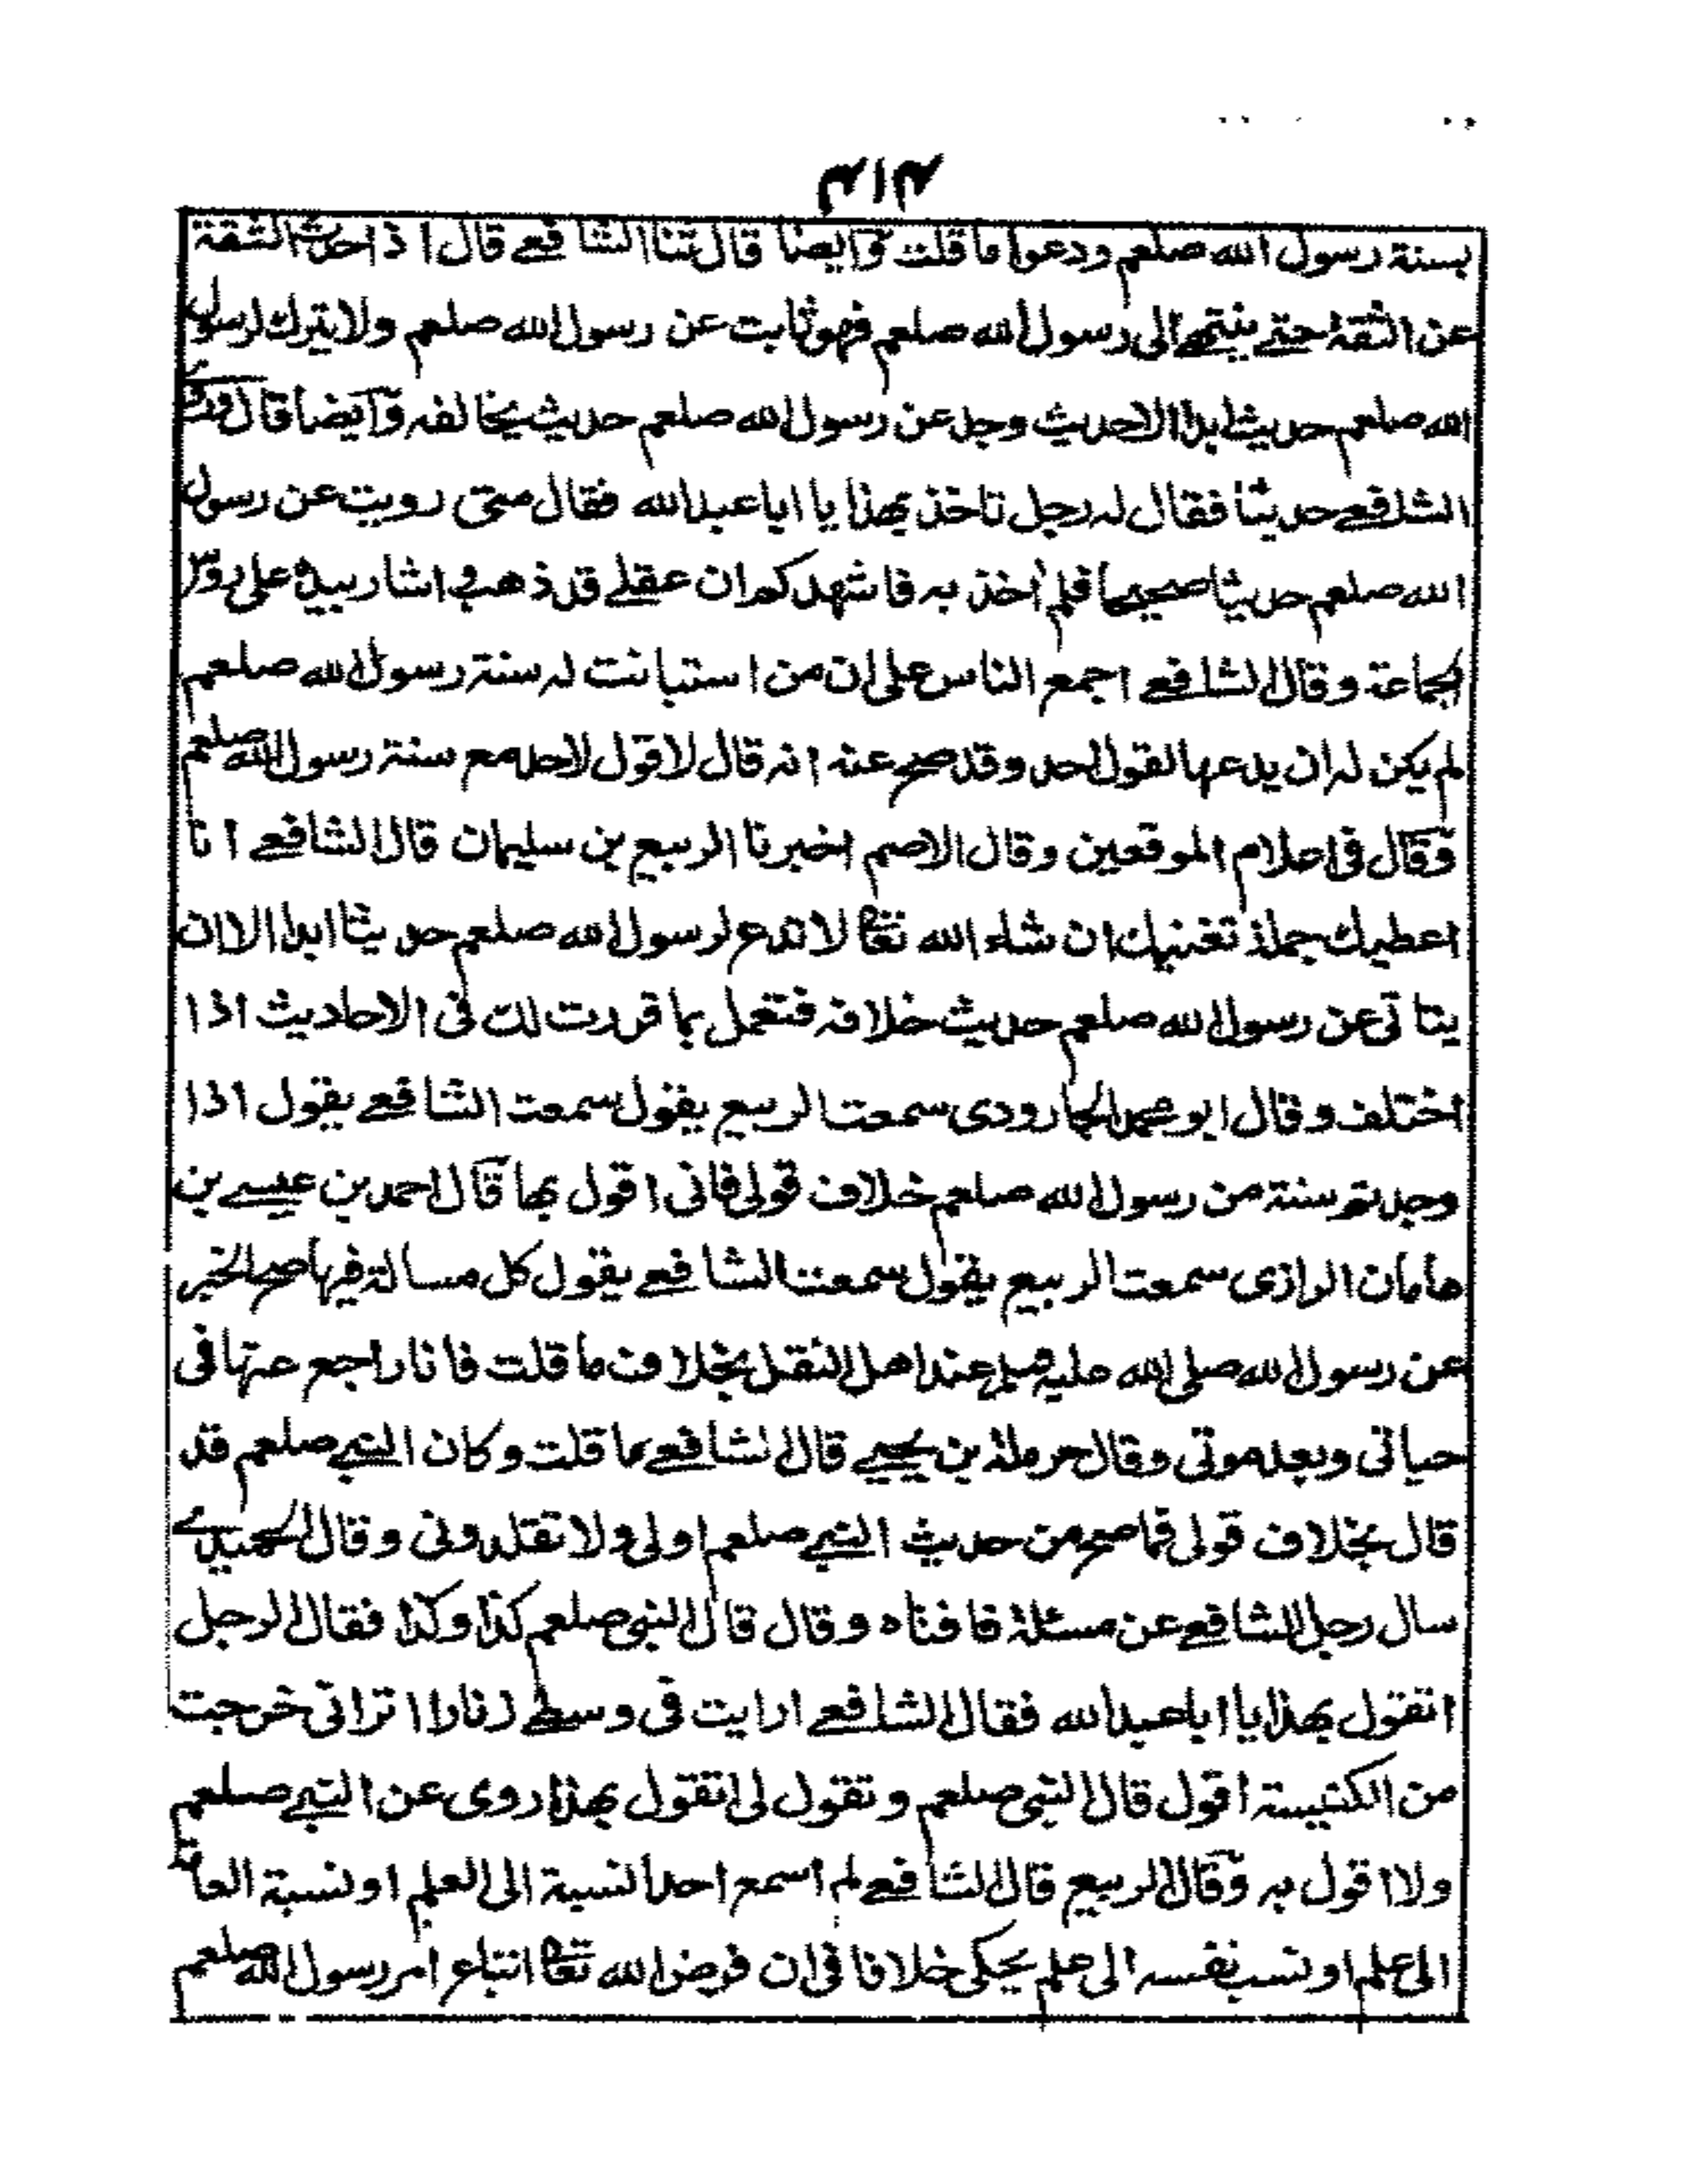 ۴۱۴
بسنة رسول الله صلعم ودعوا ما قلت وايضا قال ثنا الشافعے قال اذا حدث الثقة
عن الثقة حتے ينتهے الى رسول الله صلعم فهو ثابت عن رسول الله صلعم ولا يترك لرسول
الله صلعم حديثا ابدا الا حديث وجد عن رسول الله صلعم حديث يخالفه وايضا قال وروى
الشافعے حديثا فقال له رجل تاخذ بهذا يا ابا عبد الله فقال متى رويت عن رسول
الله صلعم حديثا صحيحا فلم اخذ به فاشهدكم ان عقلے قد ذهب واشار بيده على رؤس
الجماعة وقال الشافعے اجمع الناس على ان من استبانت له سنة رسول الله صلعم
لم يكن له ان يدعها لقول احد وقد صح عنه انه قال لا قول لاحد مع سنة رسول الله صلعم
وقال فى اعلام الموقعين وقال الاصم اخبرنا الربيع بن سليمان قال الشافعے انا
اعطيك جملة تغنيك ان شاء الله تعا لا تدع لرسول الله صلعم حديثا ابدا الا ان
يتاتى عن رسول الله صلعم حديث خلافه فتعمل بما قررت لك فى الاحاديث اذا
اختلف وقال ابو محمد الجارودى سمعت الربيع يقول سمعت الشافعے يقول اذا
وجدتم سنة من رسول الله صلعم خلاف قولى فانى اقول بها قال احمد بن عيسے بن
هامان الرازى سمعت الربيع يقول سمعت الشافعے يقول كل مسالة فيها صح الخبر
عن رسول الله صلى الله عليه وسلم عند اهل النقل بخلاف ما قلت فانا راجع عنها فى
حياتى وبعد موتى وقال حرملة بن يحيے قال الشافعے ما قلت وكان النبے صلعم قد
قال بخلاف قولى فما صح من حديث النبے صلعم اولى ولا تقلدونى وقال الحميدے
سال رجل الشافعے عن مسئلة فافتاه وقال قال النبى صلعم كذا وكذا فقال الرجل
اتقول بهذا يا ابا عبد الله فقال الشافعے ارايت فى وسطے زنارا اترانى خرجت
من الكنيسة اقول قال النبى صلعم وتقول لى اتقول بهذا روى عن النبے صلعم
ولا اقول به وقال الربيع قال الشافعے لم اسمع احدا نسبة الى العلم او نسبة العامة
الى علم او نسب نفسه الى علم يحكى خلافا فى ان فرض الله تعا اتباع امر رسول الله صلعم